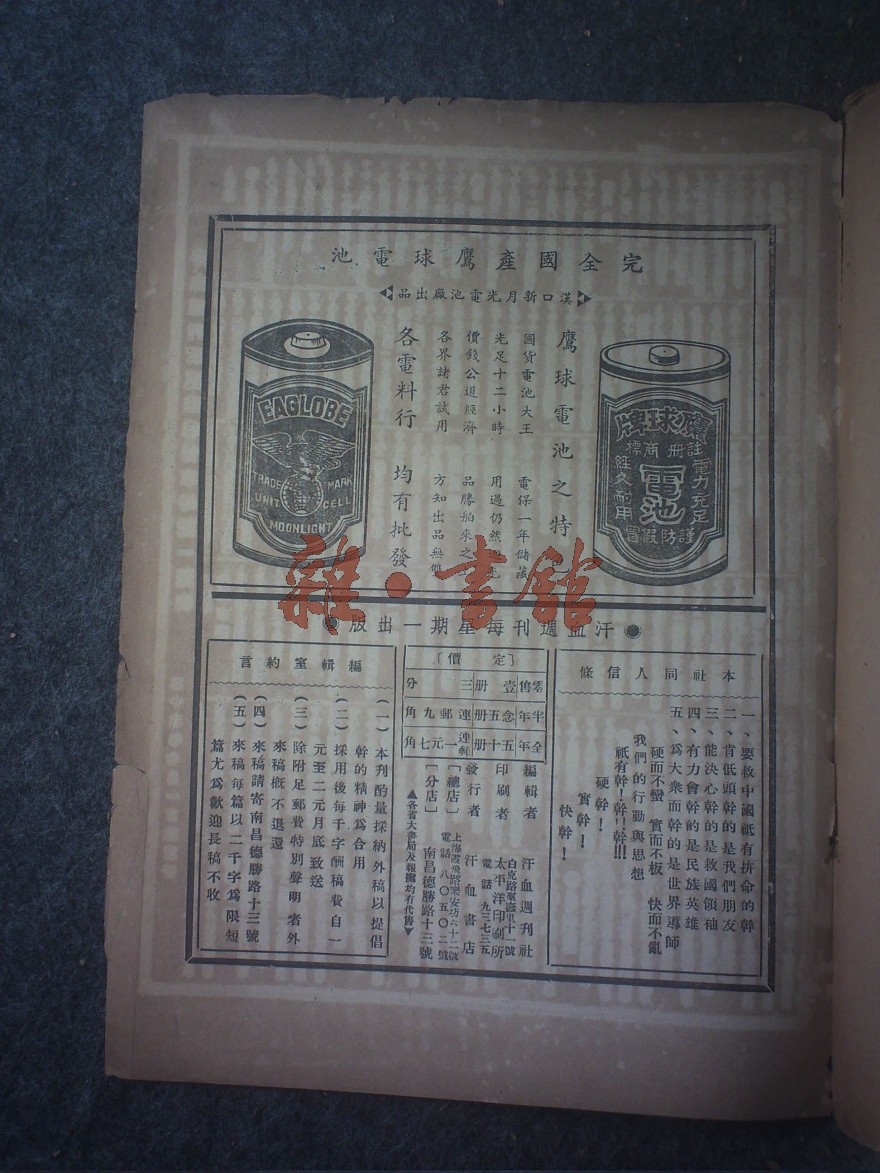 完全國產鷹球電池
漢口新月光電池廠出品
鷹球電池之特
國貨電池大王 電保一年儲藏
光足十二小時 用過仍然
價錢公道經濟 品勝舶來之
各界諸君試用 方知出品無雙
各電料行 均有批發
鷹球牌
註冊商標
電力充足
電池
經久耐用
謹防假冒
EAGLOBE
TRADE MARK
UNIT CELL
MOONLIGHT
雜·書館
汗血週刊每星期一出版
本社同人信條
一、要救中國祇有拚命的幹
二、肯低頭幹的是我們朋友
三、能決心幹的是救國領袖
四、有力會幹的是民族英雄
五、爲大衆而幹的是世界導師
硬而不蠻 實而不板 快而不亂
我們的行動與思想
祇有幹!幹!!幹!!!
硬幹!
實幹!
快幹!
〔定價〕
零售壹册三分
半年念五册連郵九角
全年五十册連郵一元七角
編輯者 汗血週刊社
白克路 十一號
印刷者 太平洋印刷所
電話 九三七三五
發行者 汗血書店
〔總店〕 上海霞飛路樂安坊六十二號
電話 八〇五〇二號
〔分店〕 南昌德勝路十三號
▲各省大書局及報攤均有代售▼
編輯室約言
(一)本刊酌量採納外稿以提倡
幹的精神爲合用
(二)採用後每千字酬稿費自一
元至二元月底致送
(三)除附足郵費特別聲明者外
來稿概不退還
(四)來稿請寄南昌德勝路十三號
(五)來稿每篇以二千字爲限短
篇尤爲歡迎長稿不收